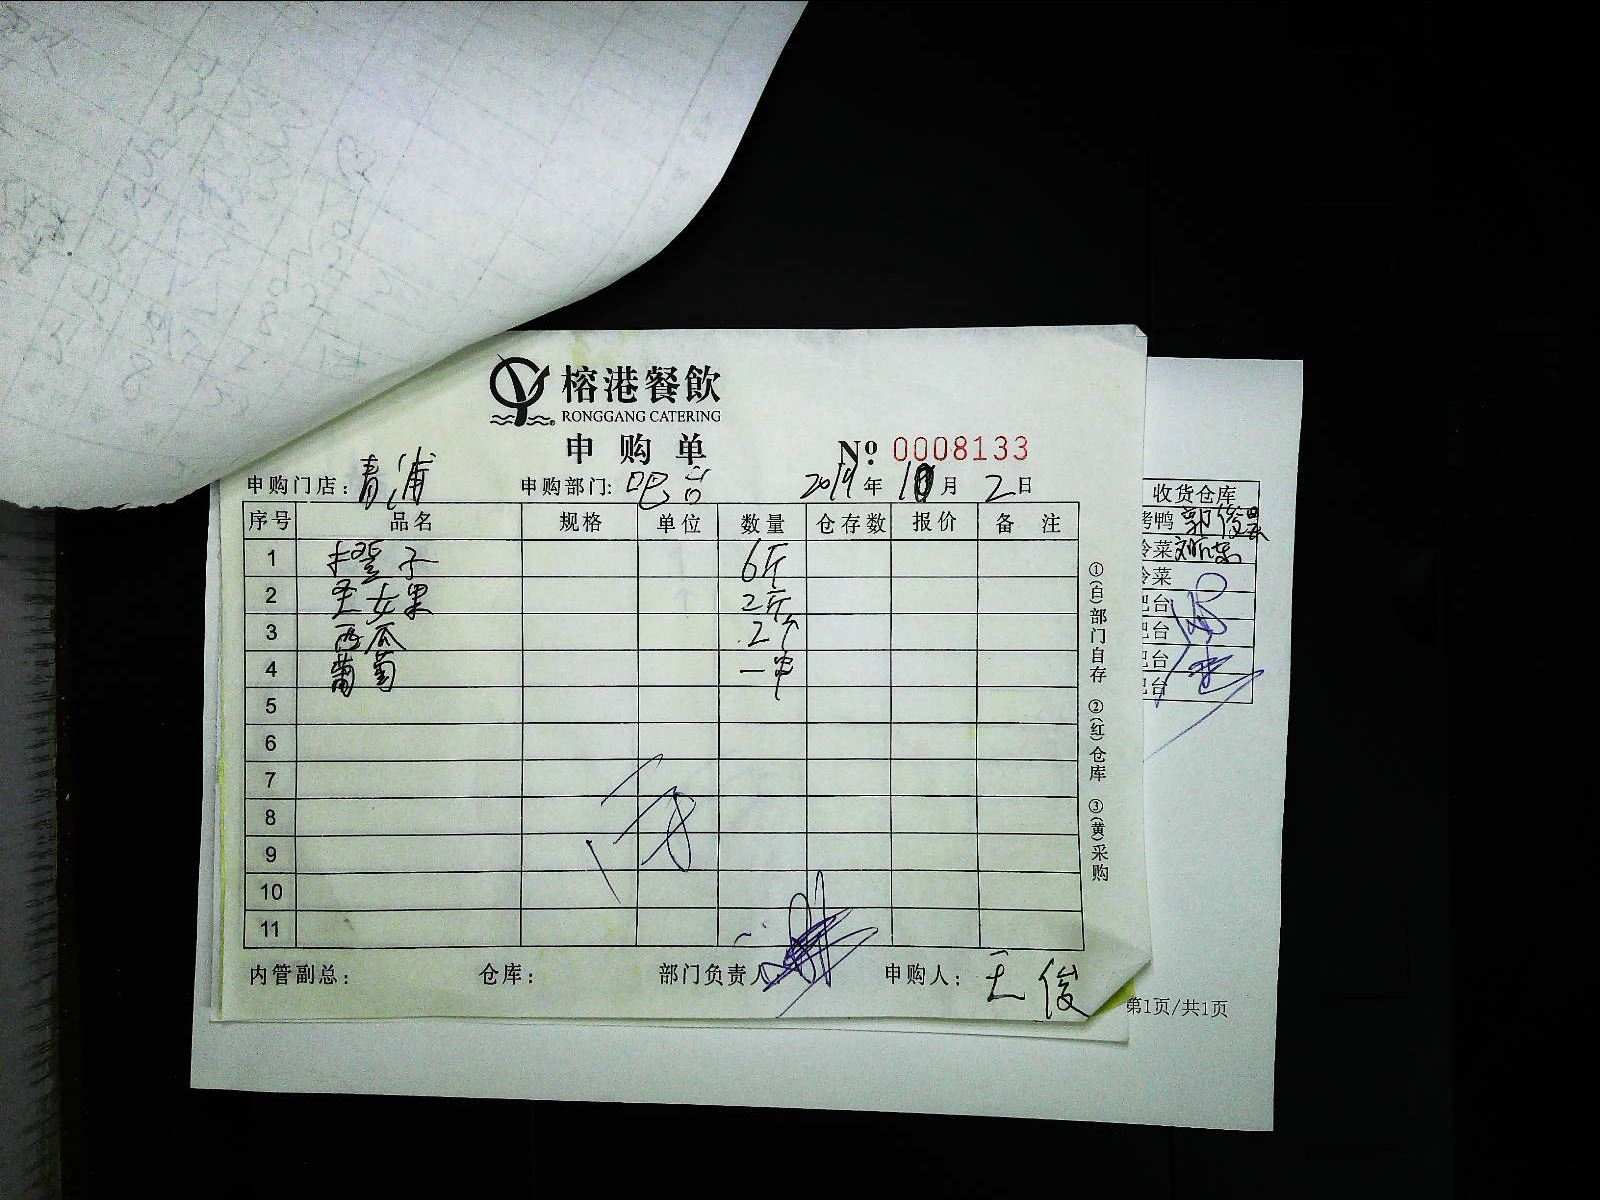 榕港餐飲
RONGGANG CATERING
申购单
№ 0008133
申购门店：青浦 申购部门：吧台 2019年10月2日
序号 品名 规格 单位 数量 仓存数 报价 备注
1 橙子 6斤
2 圣女果 2斤
3 西瓜 2个
4 葡萄 一串
5
6
7
8
9
10
11
内管副总： 仓库： 部门负责人： 申购人：王俊
①(白)部门自存 ②(红)仓库 ③(黄)采购
收货仓库
烤鸭
冷菜
冷菜
吧台
吧台
吧台
吧台
第1页/共1页